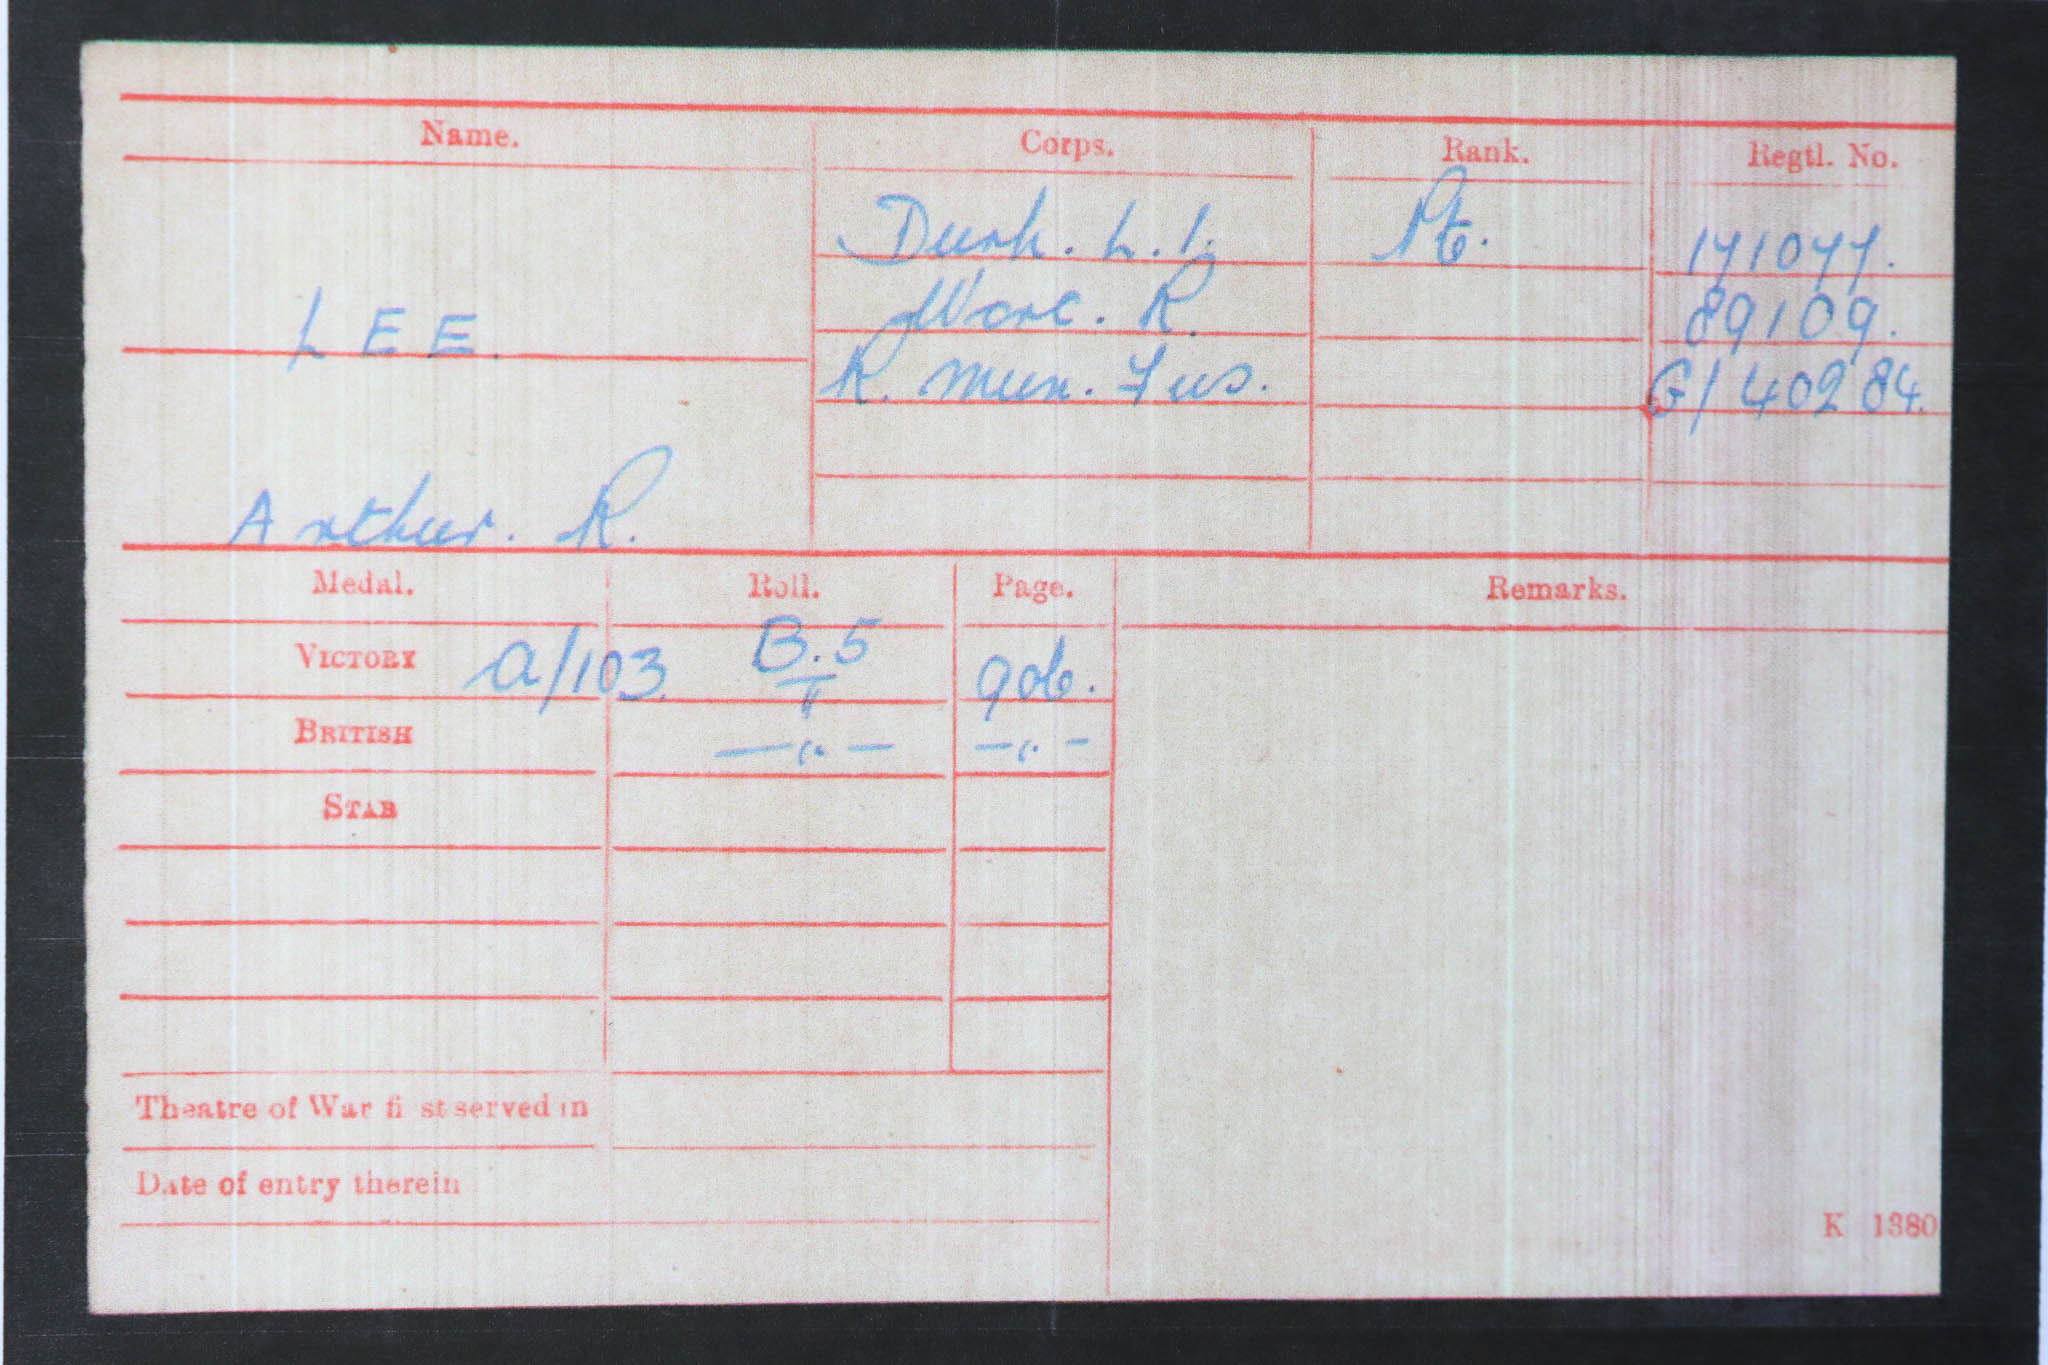 Name. Corps. Rank. Regtl. No.
Durh. L. I. Pt. 171077.
LEE. Worc. R. 89109.
R. Mun. Fus. G/40284.
Arthur. R.
Medal. Roll. Page. Remarks.
VICTORY A/103 B.5 906.
BRITISH —〃— —〃—
STAR
Theatre of War first served in
Date of entry therein
K 1380